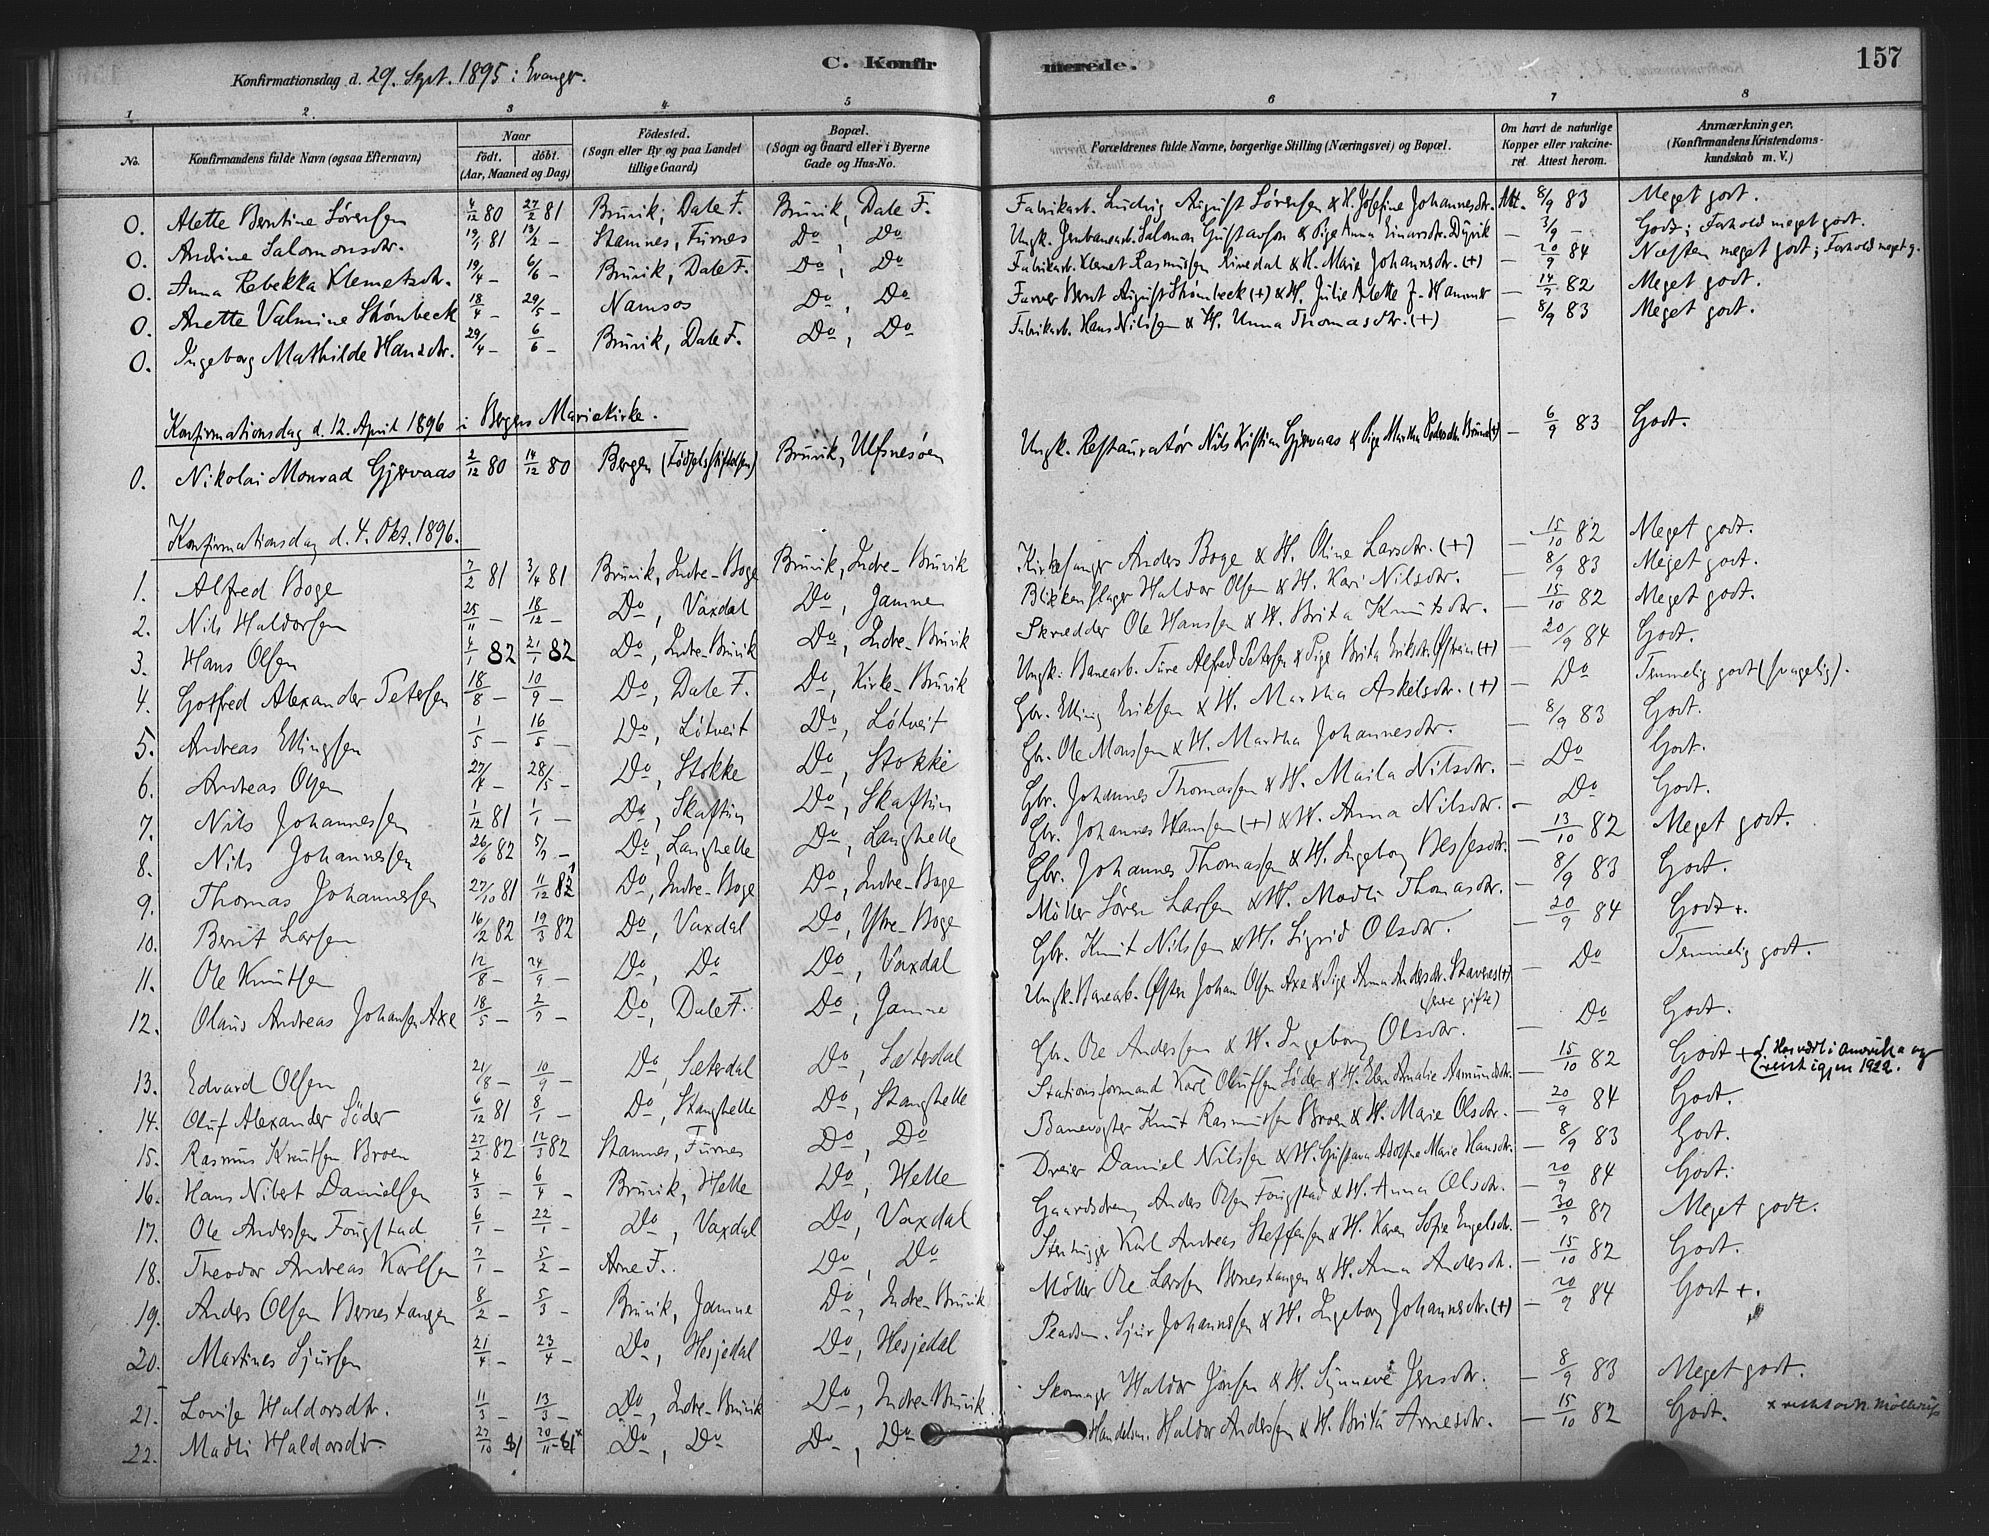 Konfirmationsdag d. 29. Sept. 1895 i Evanger.
C. Konfirmerede.
157
1 2. 3 4. 5 6 7 8
No.
Konfirmandens fulde Navn (ogsaa Efternavn)
Naar
födt. döbt.
(Aar, Maaned og Dag)
Födested.
(Sogn eller By og paa Landet
tillige Gaard)
Bopæl.
(Sogn og Gaard eller i Byerne
Gade og Hus-No.
Forældrenes fulde Navne, borgerlige Stilling (Næringsvei) og Bopæl.
Om havt de naturlige
Kopper eller vakcine-
ret Attest herom.
Anmærkninger.
(Konfirmandens Kristendoms-
kundskab m. V.)
0. Alette Berntine Sørensen 4/12 80 27/2 81 Bruvik, Dale F. Bruvik, Dale F. Fabrikarb. Ludvig August Sørensen & H. Josefine Johannesdtr. Att. 8/9 83 Meget godt.
0. Andrine Salomonsdtr. 19/1 81 13/2 – Stamnes, Furnes Do, Do Ungk. Jernbanearb. Salomon Gustavson & Pige Anna Einarsdtr. Dyvik – 3/9 – Godt; Forhold meget godt.
0. Anna Rebekka Klemetsdtr. 19/4 – 6/6 – Bruvik, Dale F. Do, Do Fabrikarb. Klemet Rasmussen & H. Marie Johannsdtr. (+) – 20/9 84 Næsten meget godt; Forhold meget g.
0. Anette Valmine Strømbeck 18/4 – 29/5 – Namsos Do, Do Farver Bernt August Strømbeck (+) & H. Julie Alette J. Hammer – 82 Meget godt.
0. Ingeborg Mathilde Hansdtr. 29/4 – 6/6 – Bruvik, Dale F. Do, Do Fabrikarb. Hans Nilssen & H. Unna Thomasdtr. (+) – 8/9 83 Meget godt.
Konfirmationsdag d. 12. April 1896 i Bergens Mariakirke.
0. Nikolai Monrad Gjervaas 2/12 80 14/12 80 Bergen (Fødselsstiftelsen) Bruvik, Ulfsnesøen Ungk. Restauratør Nils Kristian Gjervaas & Pige Martha Pedersdtr. (+) – 6/9 83 Godt.
Konfirmationsdag d. 4. Okt. 1896.
1. Alfred Boge 7/2 81 3/4 81 Bruvik, Indre-Boge Bruvik, Indre-Bruvik Kirkesanger Anders Boge & H. Oline Larsdtr. (+) – 15/10 82 Meget godt.
2. Nils Haldorsen 25/11 – 18/12 – Do, Vaxdal Do, Jamne Blikkenslager Haldor Olsen & H. Kari Nilsdtr. – 8/9 83 Meget godt.
3. Hans Olsen 82 21/1 82 Do, Indre-Bruvik Do, Indre-Bruvik Skrædder Ole Hanssen & H. Brita Knutsdtr. – 15/10 82 Meget godt.
4. Gotfred Alexander Petersen 18/8 – 10/9 – Do, Dale F. Do, Kirke-Bruvik Ungk. Banearb. Ture Alfred Petersen & Pige Brita Eriksdtr. (+) – 20/9 84 Godt.
5. Andreas Ellingsen 1/5 – 16/5 – Do, Løtveit Do, Løtveit Gbr. Elling Eriksen & H. Martha Askelsdtr. (+) – Do Temmelig godt (svagelig).
6. Andreas Olsen 27/4 – 28/5 – Do, Stokke Do, Stokke Gbr. Ole Monssen & H. Martha Johannesdtr. – 8/9 83 Godt.
7. Nils Johannessen 1/12 81 1/1 – Do, Skaftun Do, Skaftun Gbr. Johannes Thomassen & H. Maila Nilsdtr. – Do Godt.
8. Nils Johannessen 26/6 82 5/7 – Do, Langhelle Do, Langhelle Gbr. Johannes Hanssen (+) & H. Anna Nilsdtr. – Do Godt.
9. Thomas Johannessen 27/10 81 11/12 81 Do, Indre-Boge Do, Indre-Boge Gbr. Johannes Thomassen & H. Ingeborg – 13/10 82 Meget godt.
10. Bernt Larsen 16/12 82 19/3 82 Do, Vaxdal Do, Ytre-Boge Möller Sören Larsen & H. Madli Thomasdtr. – 8/9 83 Godt.
11. Ole Knutsen 12/8 – 24/9 – Do, Do Do, Vaxdal Gbr. Knut Nilssen & H. Sigrid Olsdtr. – 20/9 84 Godt +.
12. Olaus Andreas Johansen Axe 18/5 – 2/7 – Do, Dale F. Do, Jamne Ungk. Banearb. Østen Johan Olsen Axe & Pige Anna Andersdtr. Stavenes (+) – Do Temmelig godt.
(sene gifte)
13. Edvard Olsen 21/8 – 10/9 – Do, Sæterdal Do, Sæterdal Gbr. Ole Anderssen & H. Ingeborg Olsdtr. – Do Godt.
14. Oluf Alexander Söder 6/12 81 8/1 – Do, Stanghelle Do, Stanghelle Stationsformand Karl Olufsen Söder & H. Elen Amalie Aamundsdtr. – 15/10 82 Godt + Har vært i Amerika og
reist igjen 1922.
15. Rasmus Knutsen Broen 27/2 82 12/3 82 Stamnes, Furnes Do, Do Banevogter Knut Rasmussen Broen & H. Marie Olsdtr. – 20/9 84 Godt.
16. Hans Nibert Danielsen 4/3 – 6/4 – Bruvik, Helle Do, Helle Dreier Daniel Nilssen & H. Gustava Adolfne Marie Hansdtr. – 8/9 83 Godt.
17. Ole Anderssen Fougstad 6/1 – 22/1 – Do, Vaxdal Do, Vaxdal Gaardsdreng Anders Olsen Fougstad & H. Anna Olsdtr. – 20/9 84 Godt.
18. Theodor Andreas Karlsen 7/1 – 5/2 – Arne F. Do, Do Stenhugger Karl Andreas Steffensen & H. Karen Sofie Engelsdtr. – 30/7 87 Meget godt.
19. Anders Olsen Bernestangen 8/2 – 5/3 – Bruvik, Jamne Do, Indre-Bruvik Möller Ole Larsen Bernestangen & H. Anna Andersdtr. – 15/10 82 Godt.
20. Martines Sjursen 21/4 – 23/4 – Do, Hesjedal Do, Hesjedal Pladsm. Sjur Johannessen & H. Ingeborg Johannesdtr. (+) – 20/9 84 Godt +.
21. Lovise Haldorsdtr. 11/3 – 13/3 – Do, Indre-Bruvik Do, Indre-Bruvik Skomager Haldor Jonsen & H. Synneve Jensdtr. – 8/9 83 Meget godt.
22. Madli Haldorsdtr. 27/10 81 20/11 81 x Do, Do Do, Do Handelsm. Haldor Anderssen & H. Brita Arnesdtr. – 15/10 82 Godt.